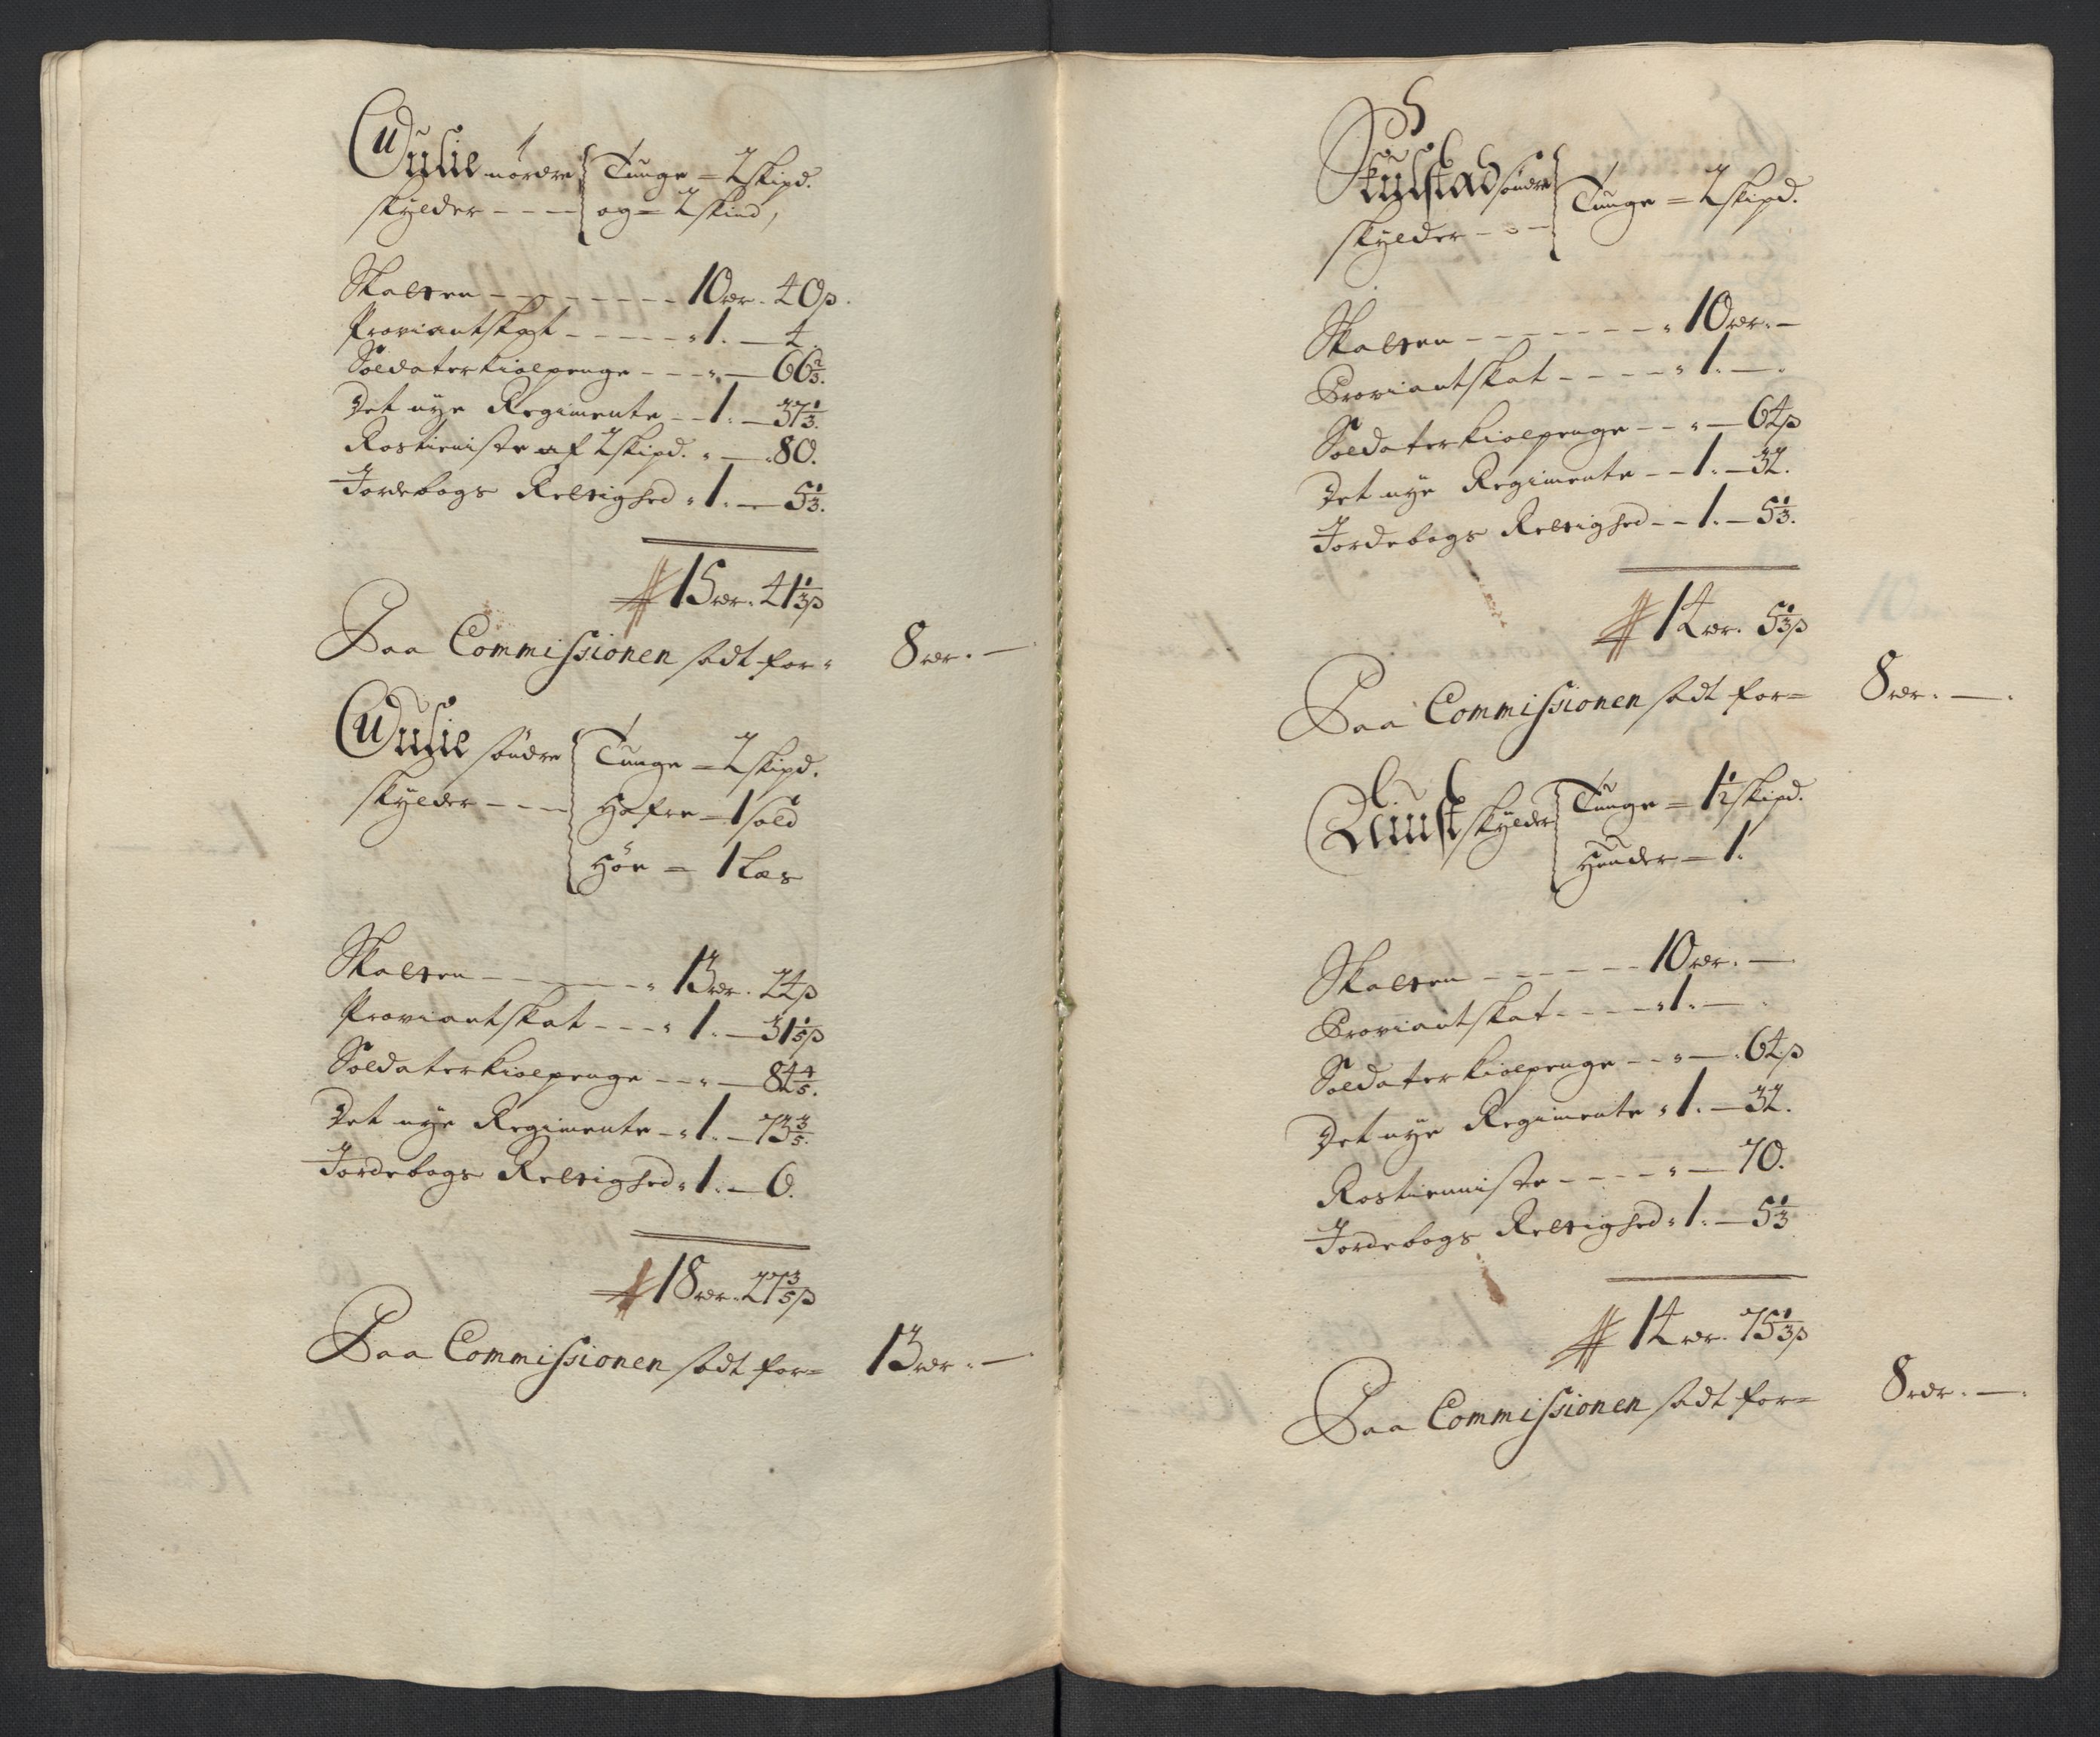 Udulie nordre Tunge = 2 skipd.
skylder - - - og = 2 skind,
Skatten - - - - - - - 10 rdr. 40 ß.
Proviantskat - - - - - " 1. — 4.
Soldaterkiolpenge - - - ". — 66 2/3.
Det nye Regimente - - 1. — 37 1/3.
Rostieniste af 2 skipd. " — " 80.
Jordebogs Rettighed " 1. — 5 1/3.
15 rdr. 41 1/3 ß
Paa Commissionen sadt for " 8 rdr. —
Udulie söndre Tunge = 2 skipd.
skylder - - - Hafre = 1 sold
Höe = 1 Læs
Skatten - - - - - - " 13 rdr. 24 ß
Proviantskat - - - " 1. — 31 1/5 ß
Soldaterkiolpenge - - " — 84 4/5.
Det nye Regimente - " 1. — 73 3/5.
Jordebogs Rettighed " 1. — 6.
18 rdr. 27 3/5 ß
Paa Commissionen sadt for = 13 rdr. —
Skulstad söndre Tunge = 2 skipd.
skylder - - -
Skatten - - - - - - - " 10 rdr. —
Proviantskat - - - - " 1. — .
Soldaterkiolpenge - - " — 64 ß
Det nye Regimente - - 1. — 32.
Jordebogs Rettighed - - 1. — 5 1/3.
14 rdr. 5 1/3 ß
Paa Commissionen sadt for = 8 rdr. — .
skylder Tunge = 1 1/2 skipd.
Huuder — 1.
Skatten - - - - - - 10 rdr. —
Proviantskat - - - - " 1. — .
Soldaterkiolpenge - - " — . 64 ß
Det nye Regimente " 1. — 32.
Rostienniste - - - - " — 70.
Jordebogs Rettighed " 1. — 5 1/3
14 rdr. 75 1/3 ß
Paa Commissionen sadt for = 8 rdr. — .